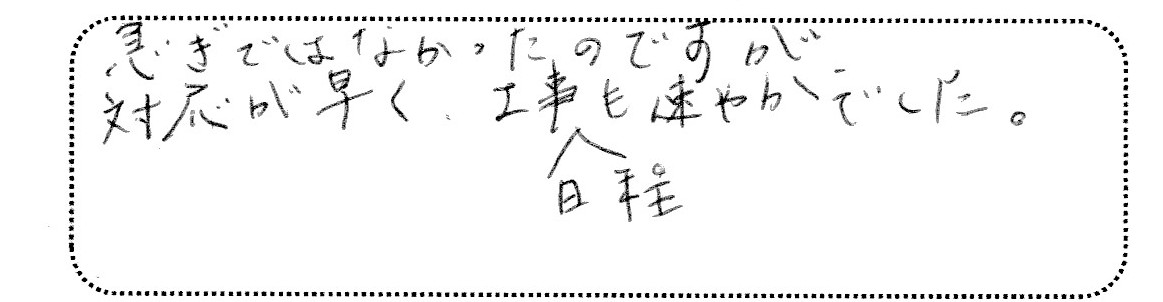 急ぎではなかったのですが
対応が早く、工事も速やかでした。
日程